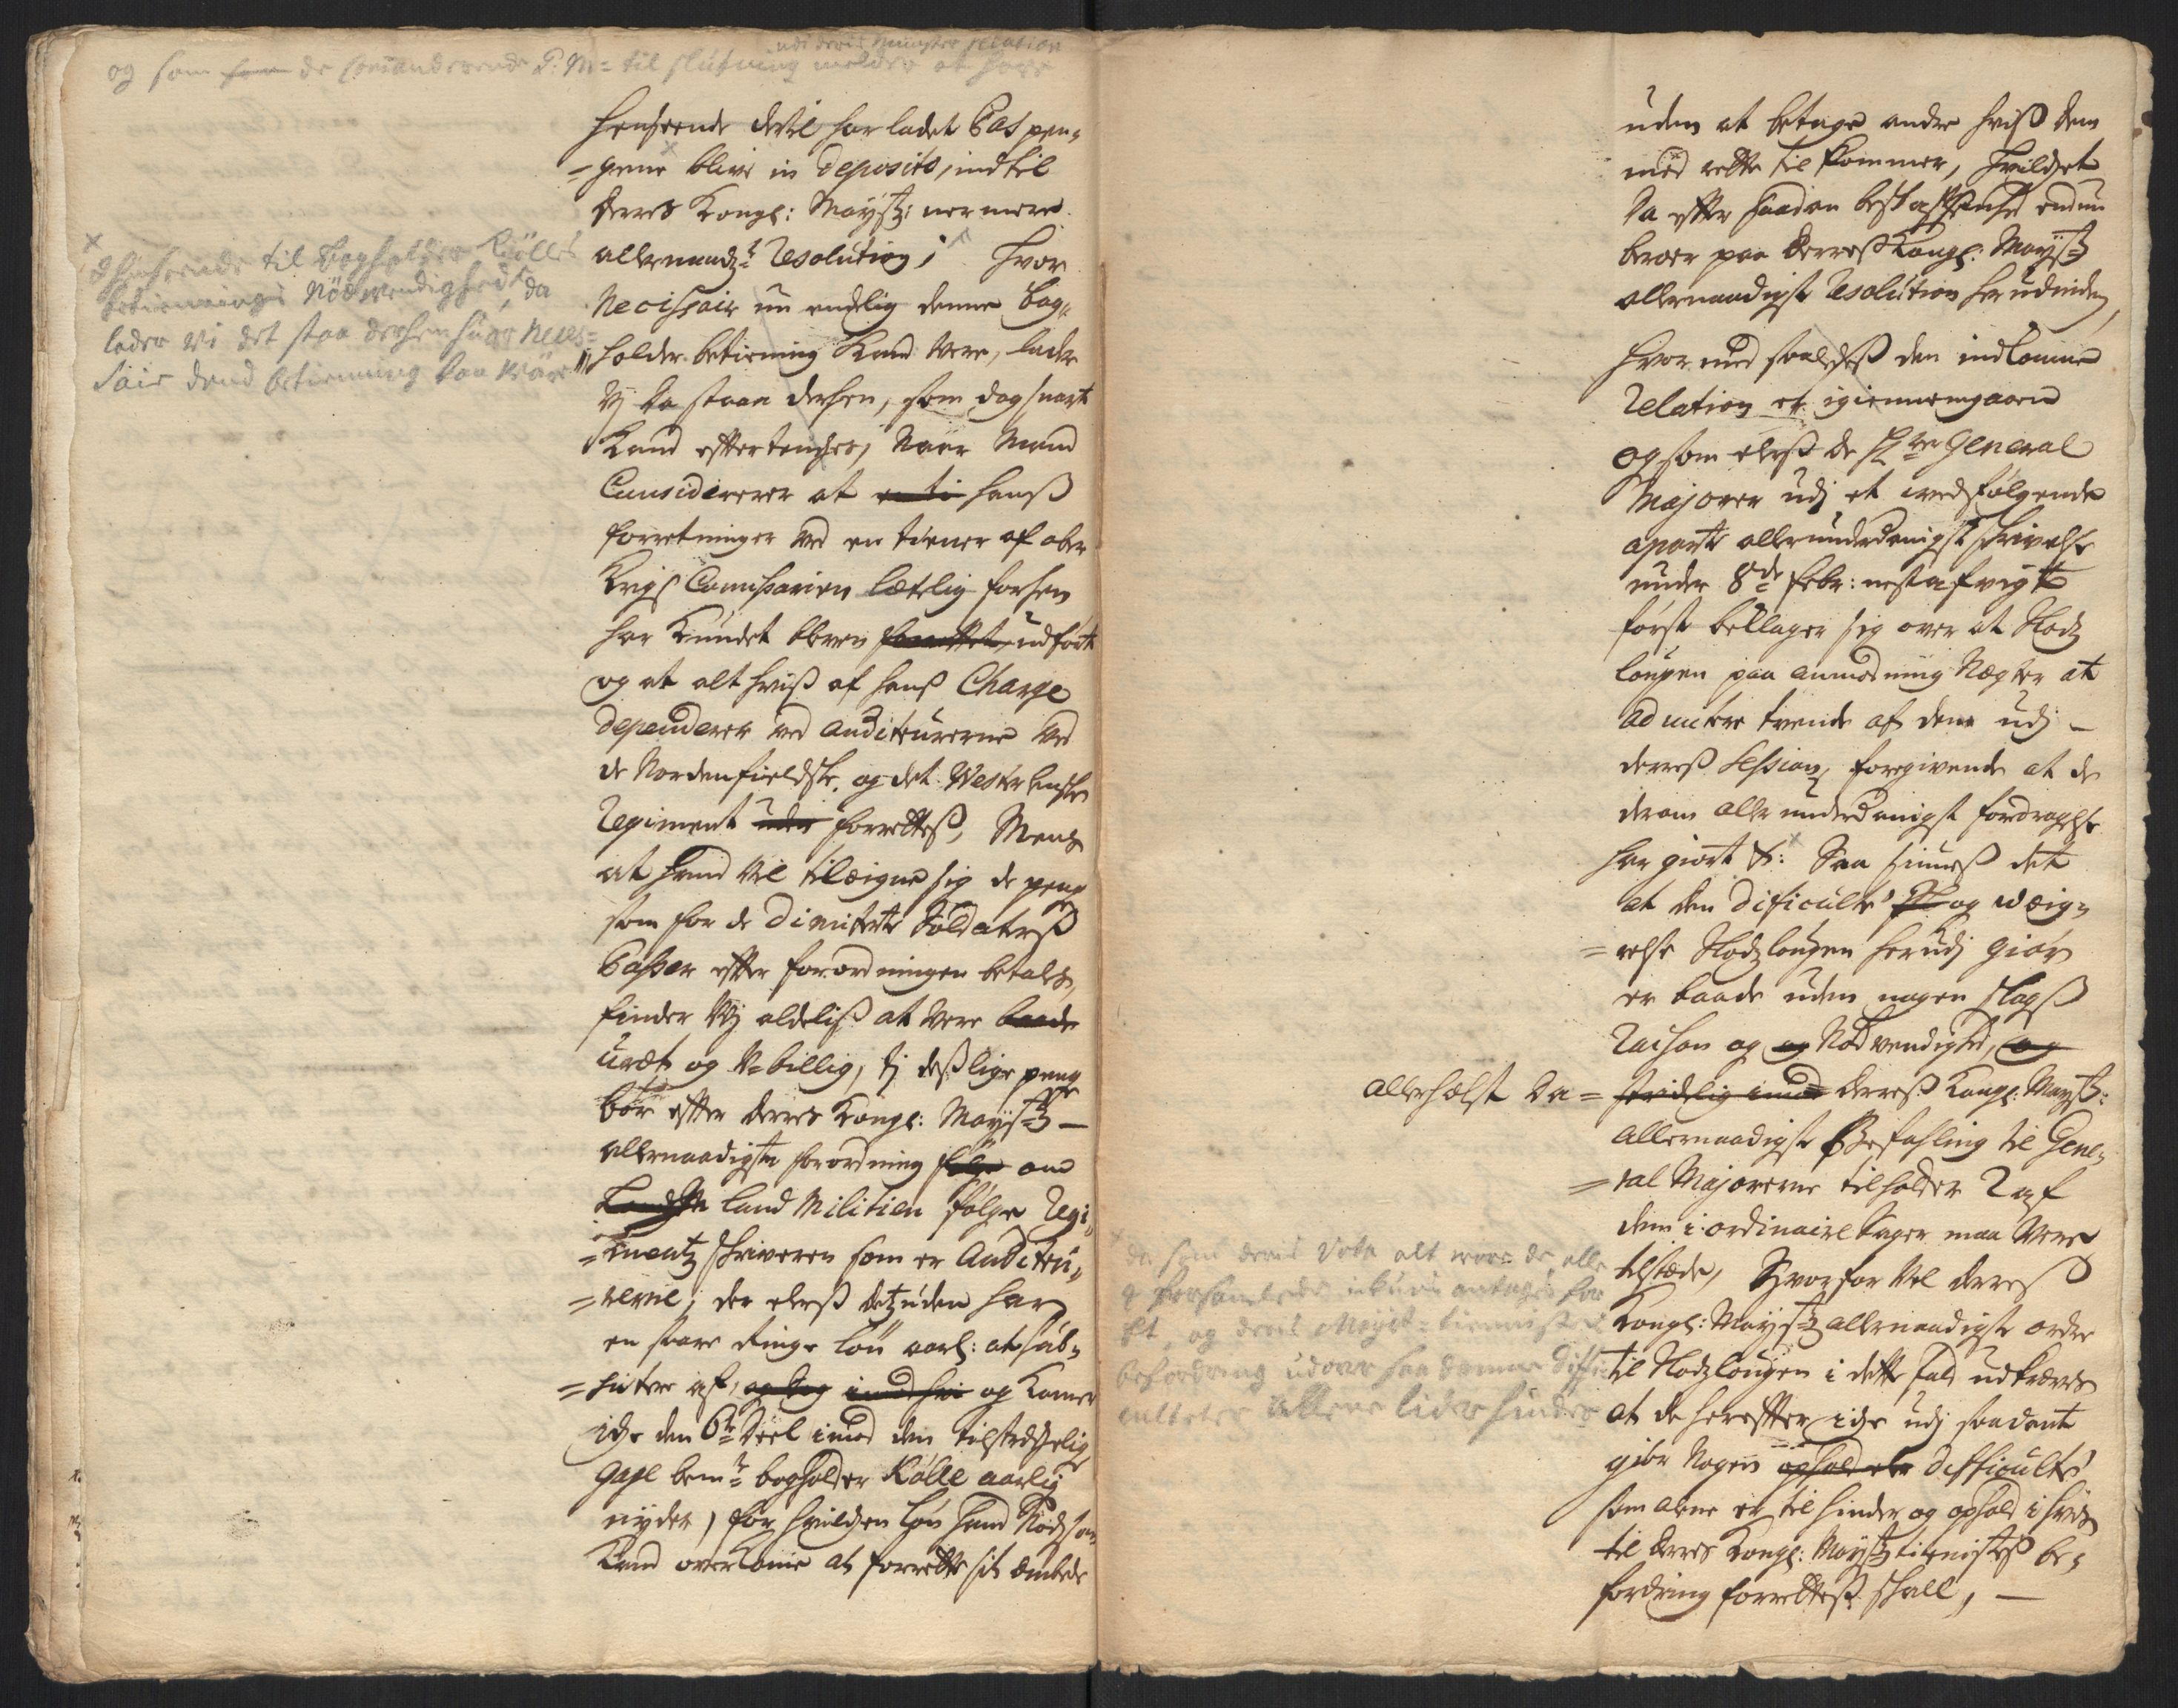 udi deris Munster relation
og som de comanderende G: M= til slutning melder at have
henseende dertil har ladet Pas pen=
=gene blive in Deposito, indtil
Deres Kongl: Mayst: nermere
allernaadst Resolution; hvor
Necissair nu endelig denne bog=
holder betiening kand vere, lader
Vj da staae derhen, som dog snart
kand eftertenches, Naar Mand
Considererer at hanß
forretninger ved en tiener af ober
Krigs Comissarien lættelig forhen
har kundet bleven udført
og at alt hviß af hanß Charge
dependerer ved auditeurerne ved
de Nordenfieldske, og det Westerlenske
Regiment forretteß, Mens
at hand vil tilæigne sig de penge
som for de Dimitterte Soldaterß
Passer efter forordningen betales,
finder Vj aldeliß at vere baade
uræt og U-billig, tj deßlige penge
bør efter Deres Kongl: Mayst:
allernaadigste forordning om
Land Militien følge Regi=
=mentz skriveren som er Auditeu=
=rerne; der elerß detzuden har
en ringe løn aarl: at sub=
=sistere af, og komer
iche den 6te Deel imod den tilstrechelig
gage bemte bogholder Kølle aarlig
nyder, for hvilchen løn hand
kand overkome at forrette sit embede
x
henseende til bogholder Kølles
betienings Nødvendighed, da
lader vi det staa derhen huor neces=
sair dend betienning kan være
uden at betage andre hviß dem
med rette til kommer, hvilchet
da efter saadan beskaffenhed endnu
beroer paa Derreß Kongl: Mayst:
allernaadigste Resolution herudinden,
hvormed saaledeß den indkomne
Relation er igiennemgaaen
og som elerß de Hrr General
Majorer udj et vedfølgende
aparte allerunderdanigst skrivelse
under 8de Febr: nestafvigt
først beklager sig over at Slodz
lougen paa anmodning Nægter at
admitere tvende af dem udj
derreß Session, foregivende at de
derom allerunderdanigst fordragelse
har giort &: Saa siuneß det
at den dificulté og wæig=
=relse Slodzlougen herudj giør
er baade uden nogen slagß
Raison og Nødvendighed,
allerhelst da = Derreß Kongl: Mayst:
allernaadigste Befahling til Gene=
=ral Majorerne tilholder 2 af
dem i ordinaire Sager maa vere
tilstæde, Hvorfor vel Derreß
Kongl: Mayst: allernaadigste ordre
til Slodzlougen i dette fald udkræves
at de herefter iche udj saadant
giør Nogen difficulté
som alene er til hinder og ophold i hvis
til Derres Kongl: Mayst: tienisteß be=
fordring forretteß skall,
da som deres Vota alt være de alle
og deris Mayst: tienist
befordring udover saa denne diffi
culteter allene lider hinder